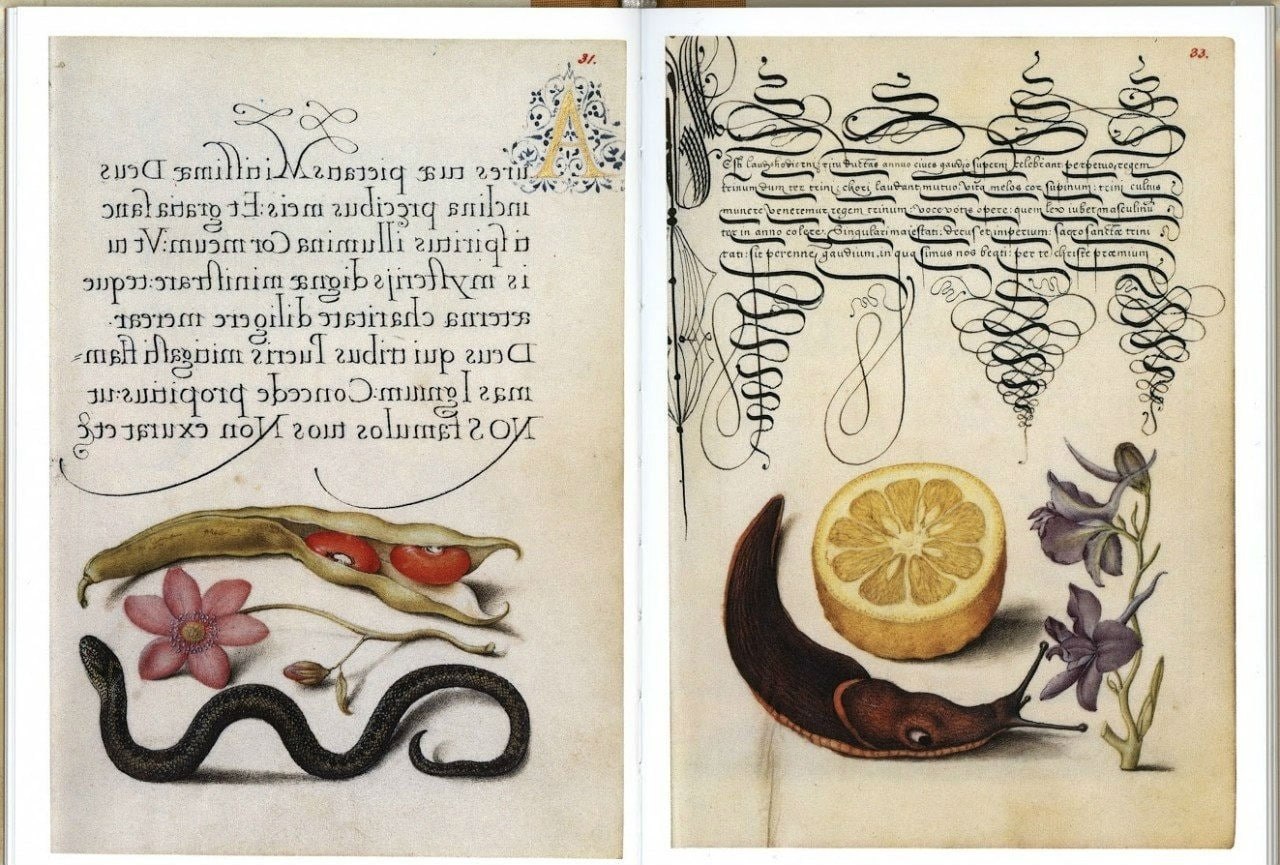 31.
A
ures tuæ pietatis Mitiſſimæ Deus
inclina precibus meis: Et gratia sanc
ti ſpiritus illumina Cor meum: Vt tu
is myſterijs dignæ miniſtrare: teque
æterna charitate diligere merear.
Deus qui tribus Pueris mitigaſti flam=
mas Ignium: Concede propitius: ut
NOS famulos tuos Non exurat etc
33.
laus hodierni: ritu ductas annuo cives gaudio superni celebrant perpetuo, regem
trinum dum ter trini: chori laudant mutuo Vita melos cor supinum: trini cultus
munere Veneremur regem trinum: voce votis opere: quem lex iubet masculinū
ter in anno colere. Singulari maiestati: Decus et imperium: sacrosanctæ trini
tati: sit perenne gaudium, in qua simus nos beati: per te christe præmium